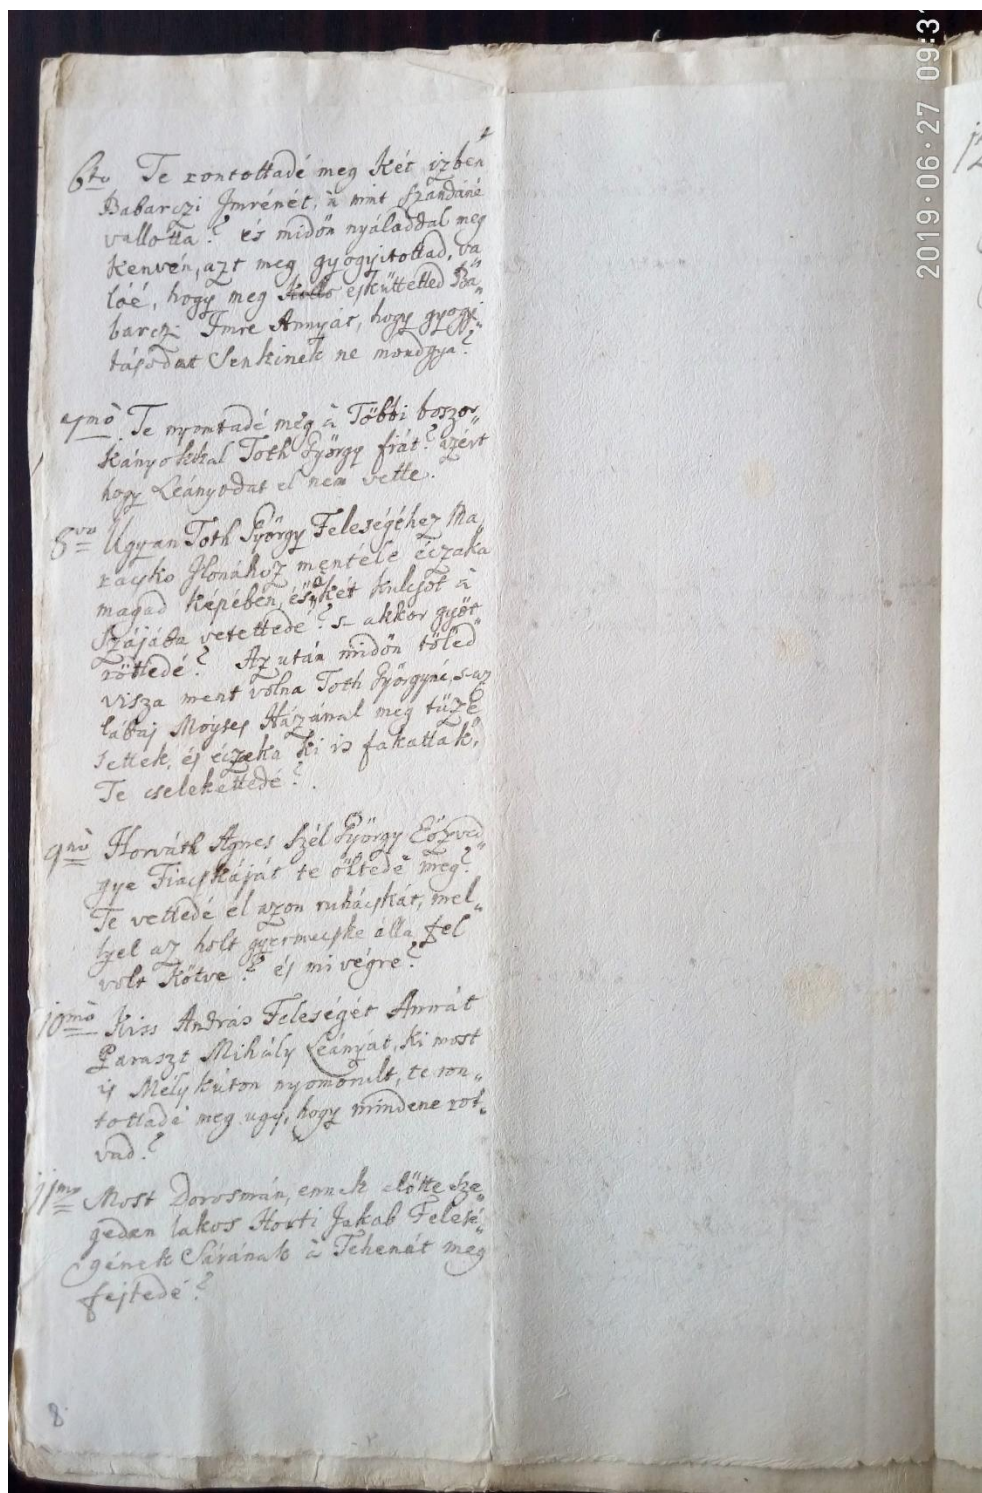 6to Te rontottadé meg Két izben
Babarczi Jmrénét, à mint Szándáné
vallotta? és midőn nyáladdal meg
kenvén, azt meg gyógyitottad, va
lóé, hogy meg esküttetted Ba„
barczi Imre Annyát, hogy gyogyi„
tásodat Senkinek ne mondgya?
7mò Te nyomtadé meg à Többi boszor„
kányokkal Toth György fiát? azért
hogy Leányodat el nem vette.
8vo Ugyan Toth György Feleségéhez Ma„
racsko Ilonához mentéle éczaka
magad képében, és két kulcsot à
Szájába vetettedé? s akkor gyöt„
rötledé? Az után midőn tőled
visza ment volna Toth Györgyné, s az
lábaj Moyses Házánál meg tüze„
settek, és éczaka ki is fakattak,
Te cselekettedé?
9nò Horváth Agnes Szél György Eözved„
gye Fiacskáját te öltedé meg?
Te vetledé el azon ruhácskát, mel„
lyel az holt gyermecske álla fel
volt Kötve? és mi végre?
10mò Kiss András Feleségét Annát
Paraszt Mihály Leányát, Ki most
is Mélykúton nyomorult, te ron„
tottadé meg ugy, hogy mindene rot„
vad?
11mo Most Dorosmán, ennek előtte Sze„
geden lakos Horti Jakab Felesé„
gének Sárának à Tehenét meg
fejtedé?
8
2019·06·27 09:31
12